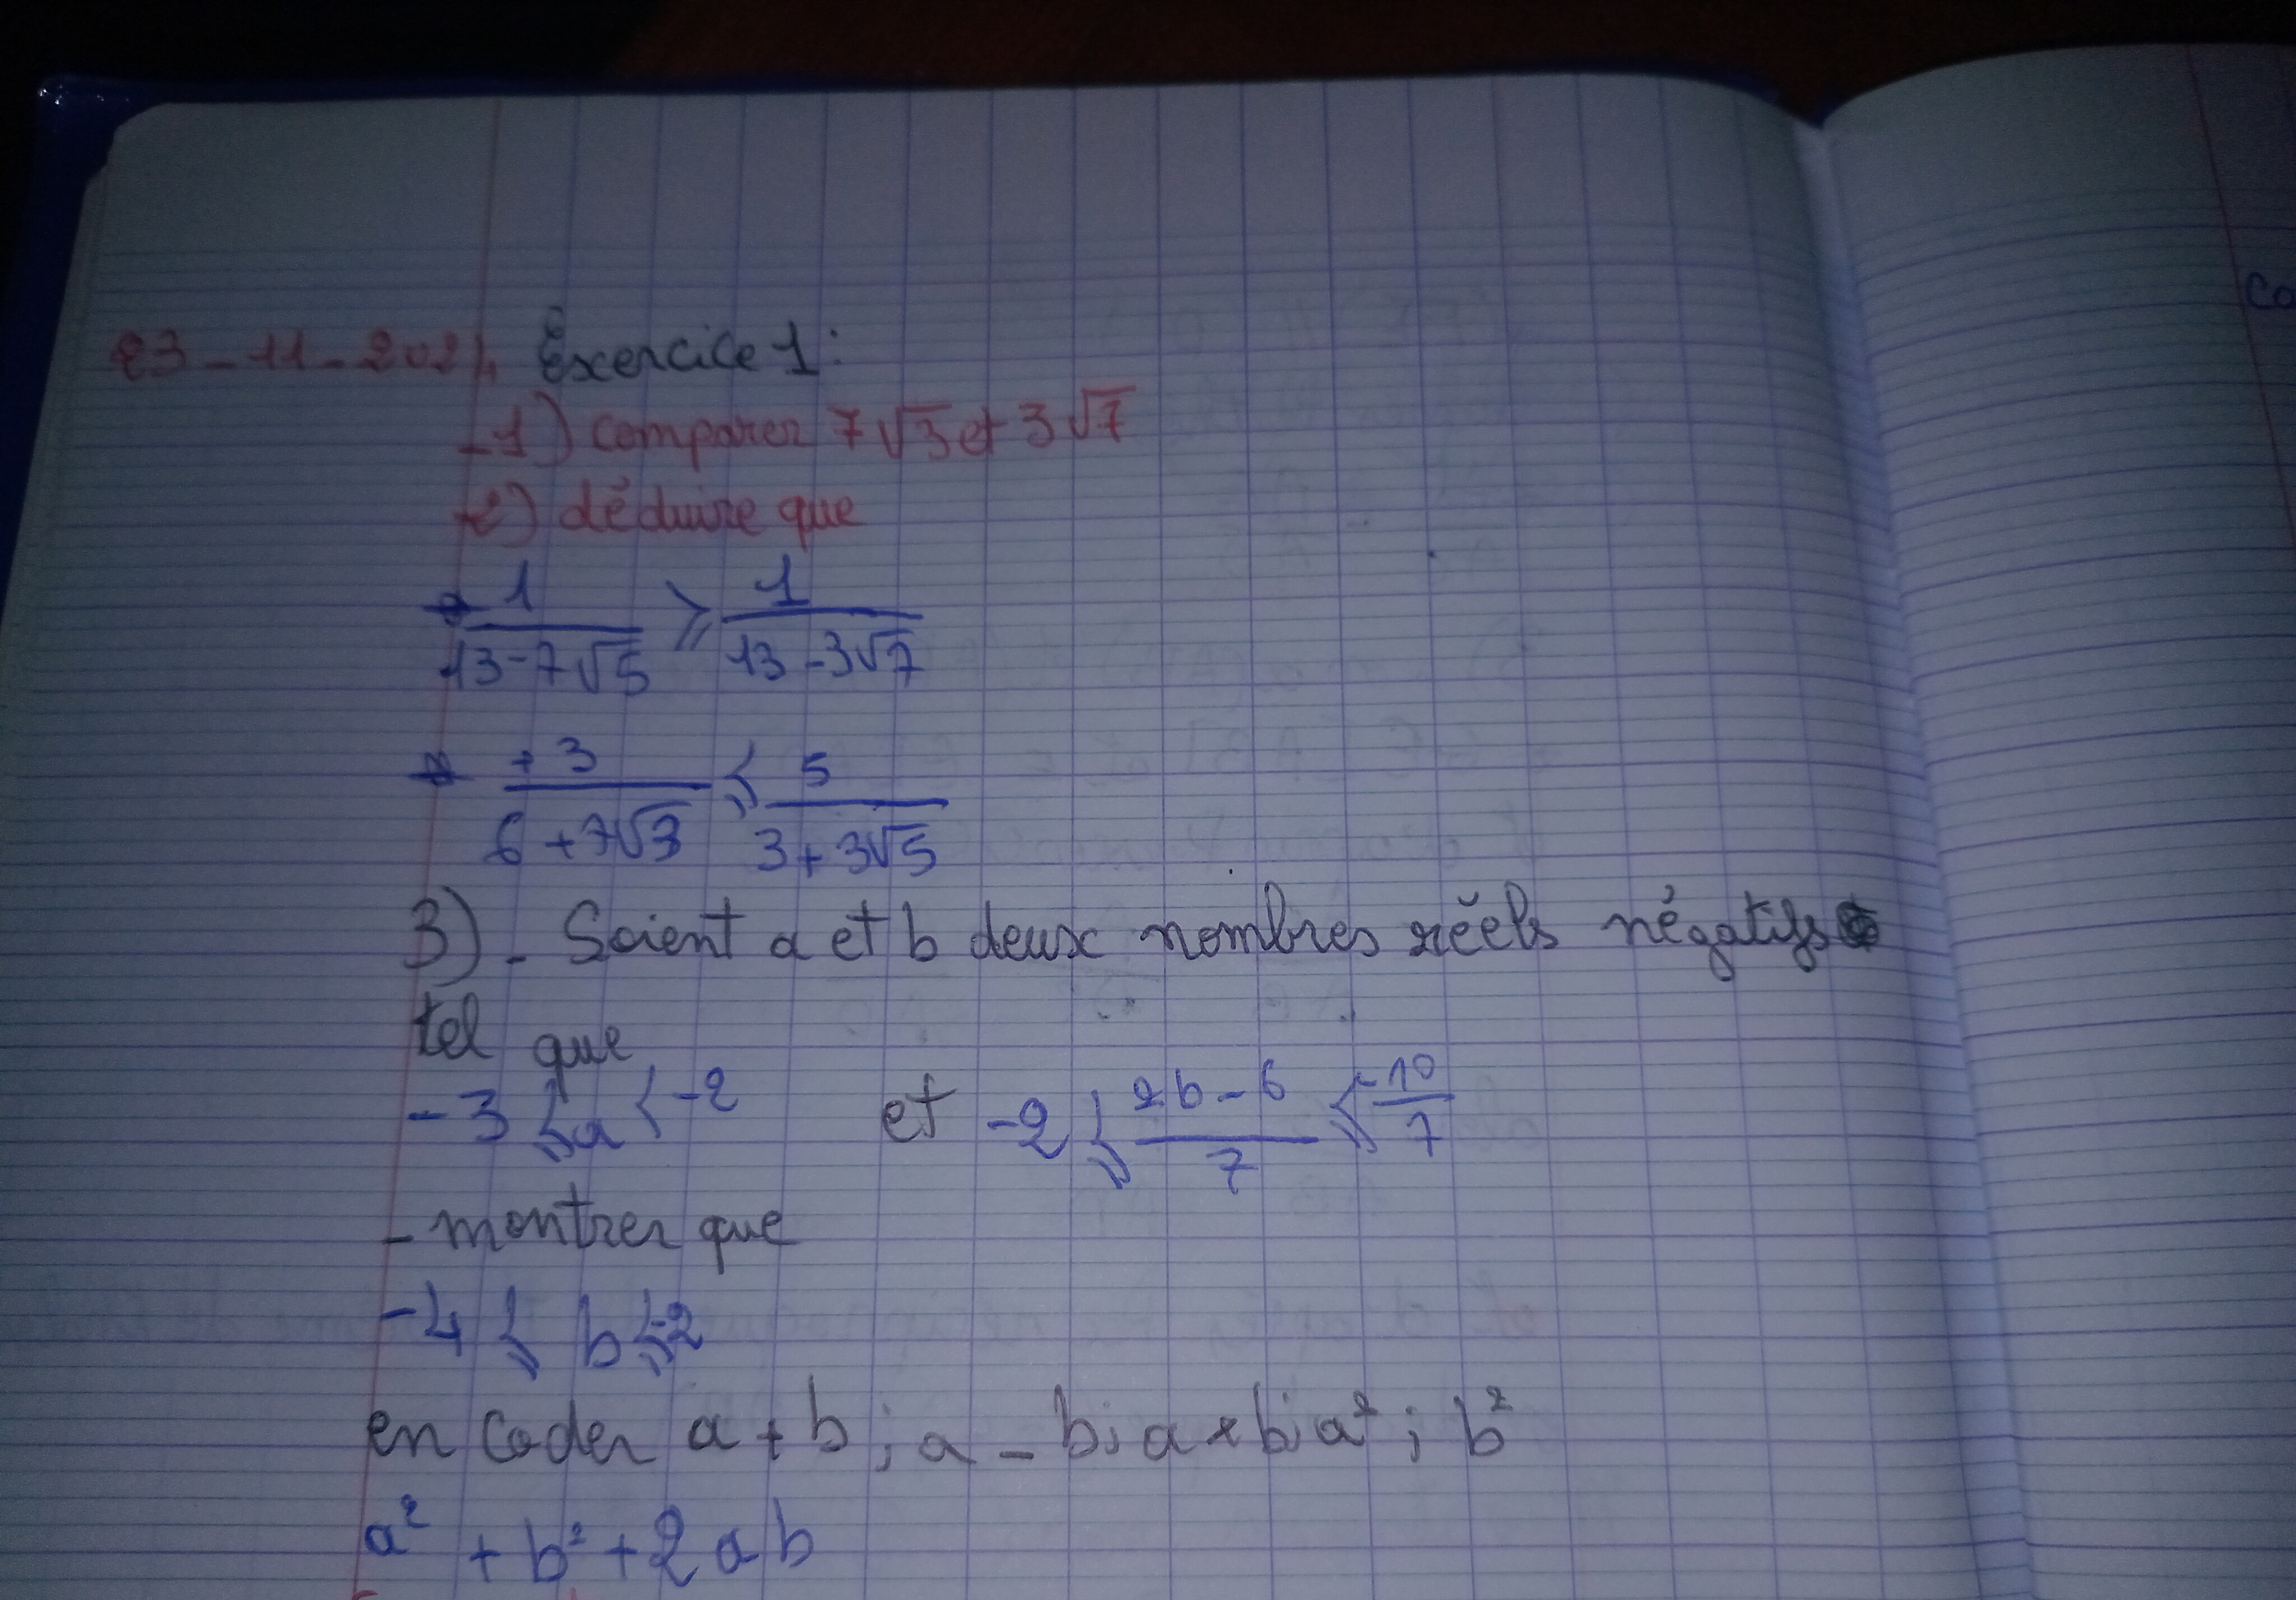 23-11-2024 Exercice 1:
-1) comparer 7√3 et 3√7
2) déduire que
1/(13-7√5) ⩾ 1/(13-3√7)
+3/(6+7√3) ⩽ 5/(3+3√5)
3)- Soient a et b deux nombres réels négatifs
tel que
-3 ⩽ a < -2 et -2 ⩽ (2b-6)/7 ⩽ -10/7
- montrer que
-4 ⩽ b ⩽ -2
en coder a+b; a-b; a×b; a²; b²
a² + b² + 2ab
Co